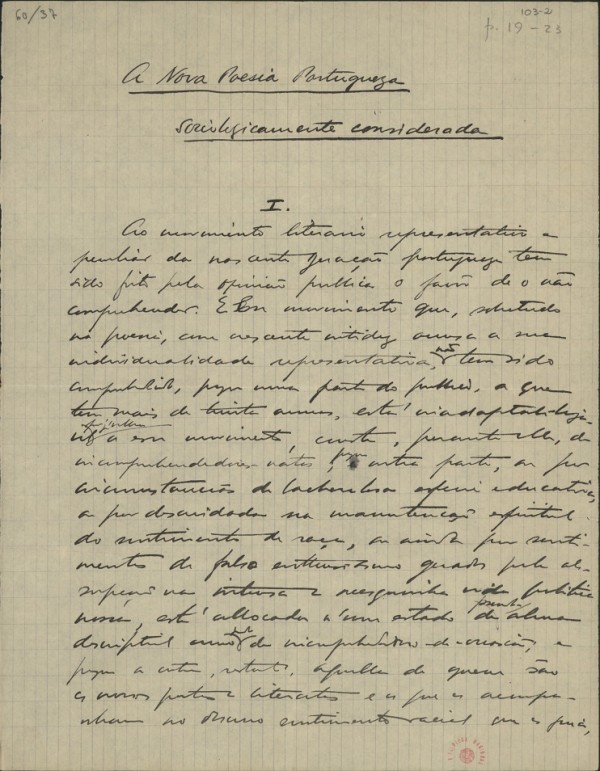 60/37
103-2
p. 19-23
A Nova Poesia Portugueza
Sociologicamente considerada
I.
Ao movimento literario representativo e
peculiar da nascente geração portugueza tem
sido feito pela opinião publica o favôr de o não
comprehender. E esse movimento que, sobretudo
na poesia, com crescente nitidez accusa a sua
individualidade representativa, não tem sido
comprehendido, porque uma parte do publico, a que
tem mais de trinta annos, está inadaptabiliza-
a esse movimento, perante elle, de
incomprehendedores-natos; porque outra parte, ou por
circumstancias de educativa,
ou por descuidada na manutenção espiritual
do sentimento de raça, ou ainda por senti-
mentos de falso enthusiasmo gerados pela
intensa e mesquinha vida politica
nossa, está allocada n'um estado de alma
descriptivel como de incomprehendedor-de-occasião; e
porque a outra, restante, aquella de quem são
os novos poetas e literatos e os que os acompa-
nham no obscuro sentimento racial que os guia,